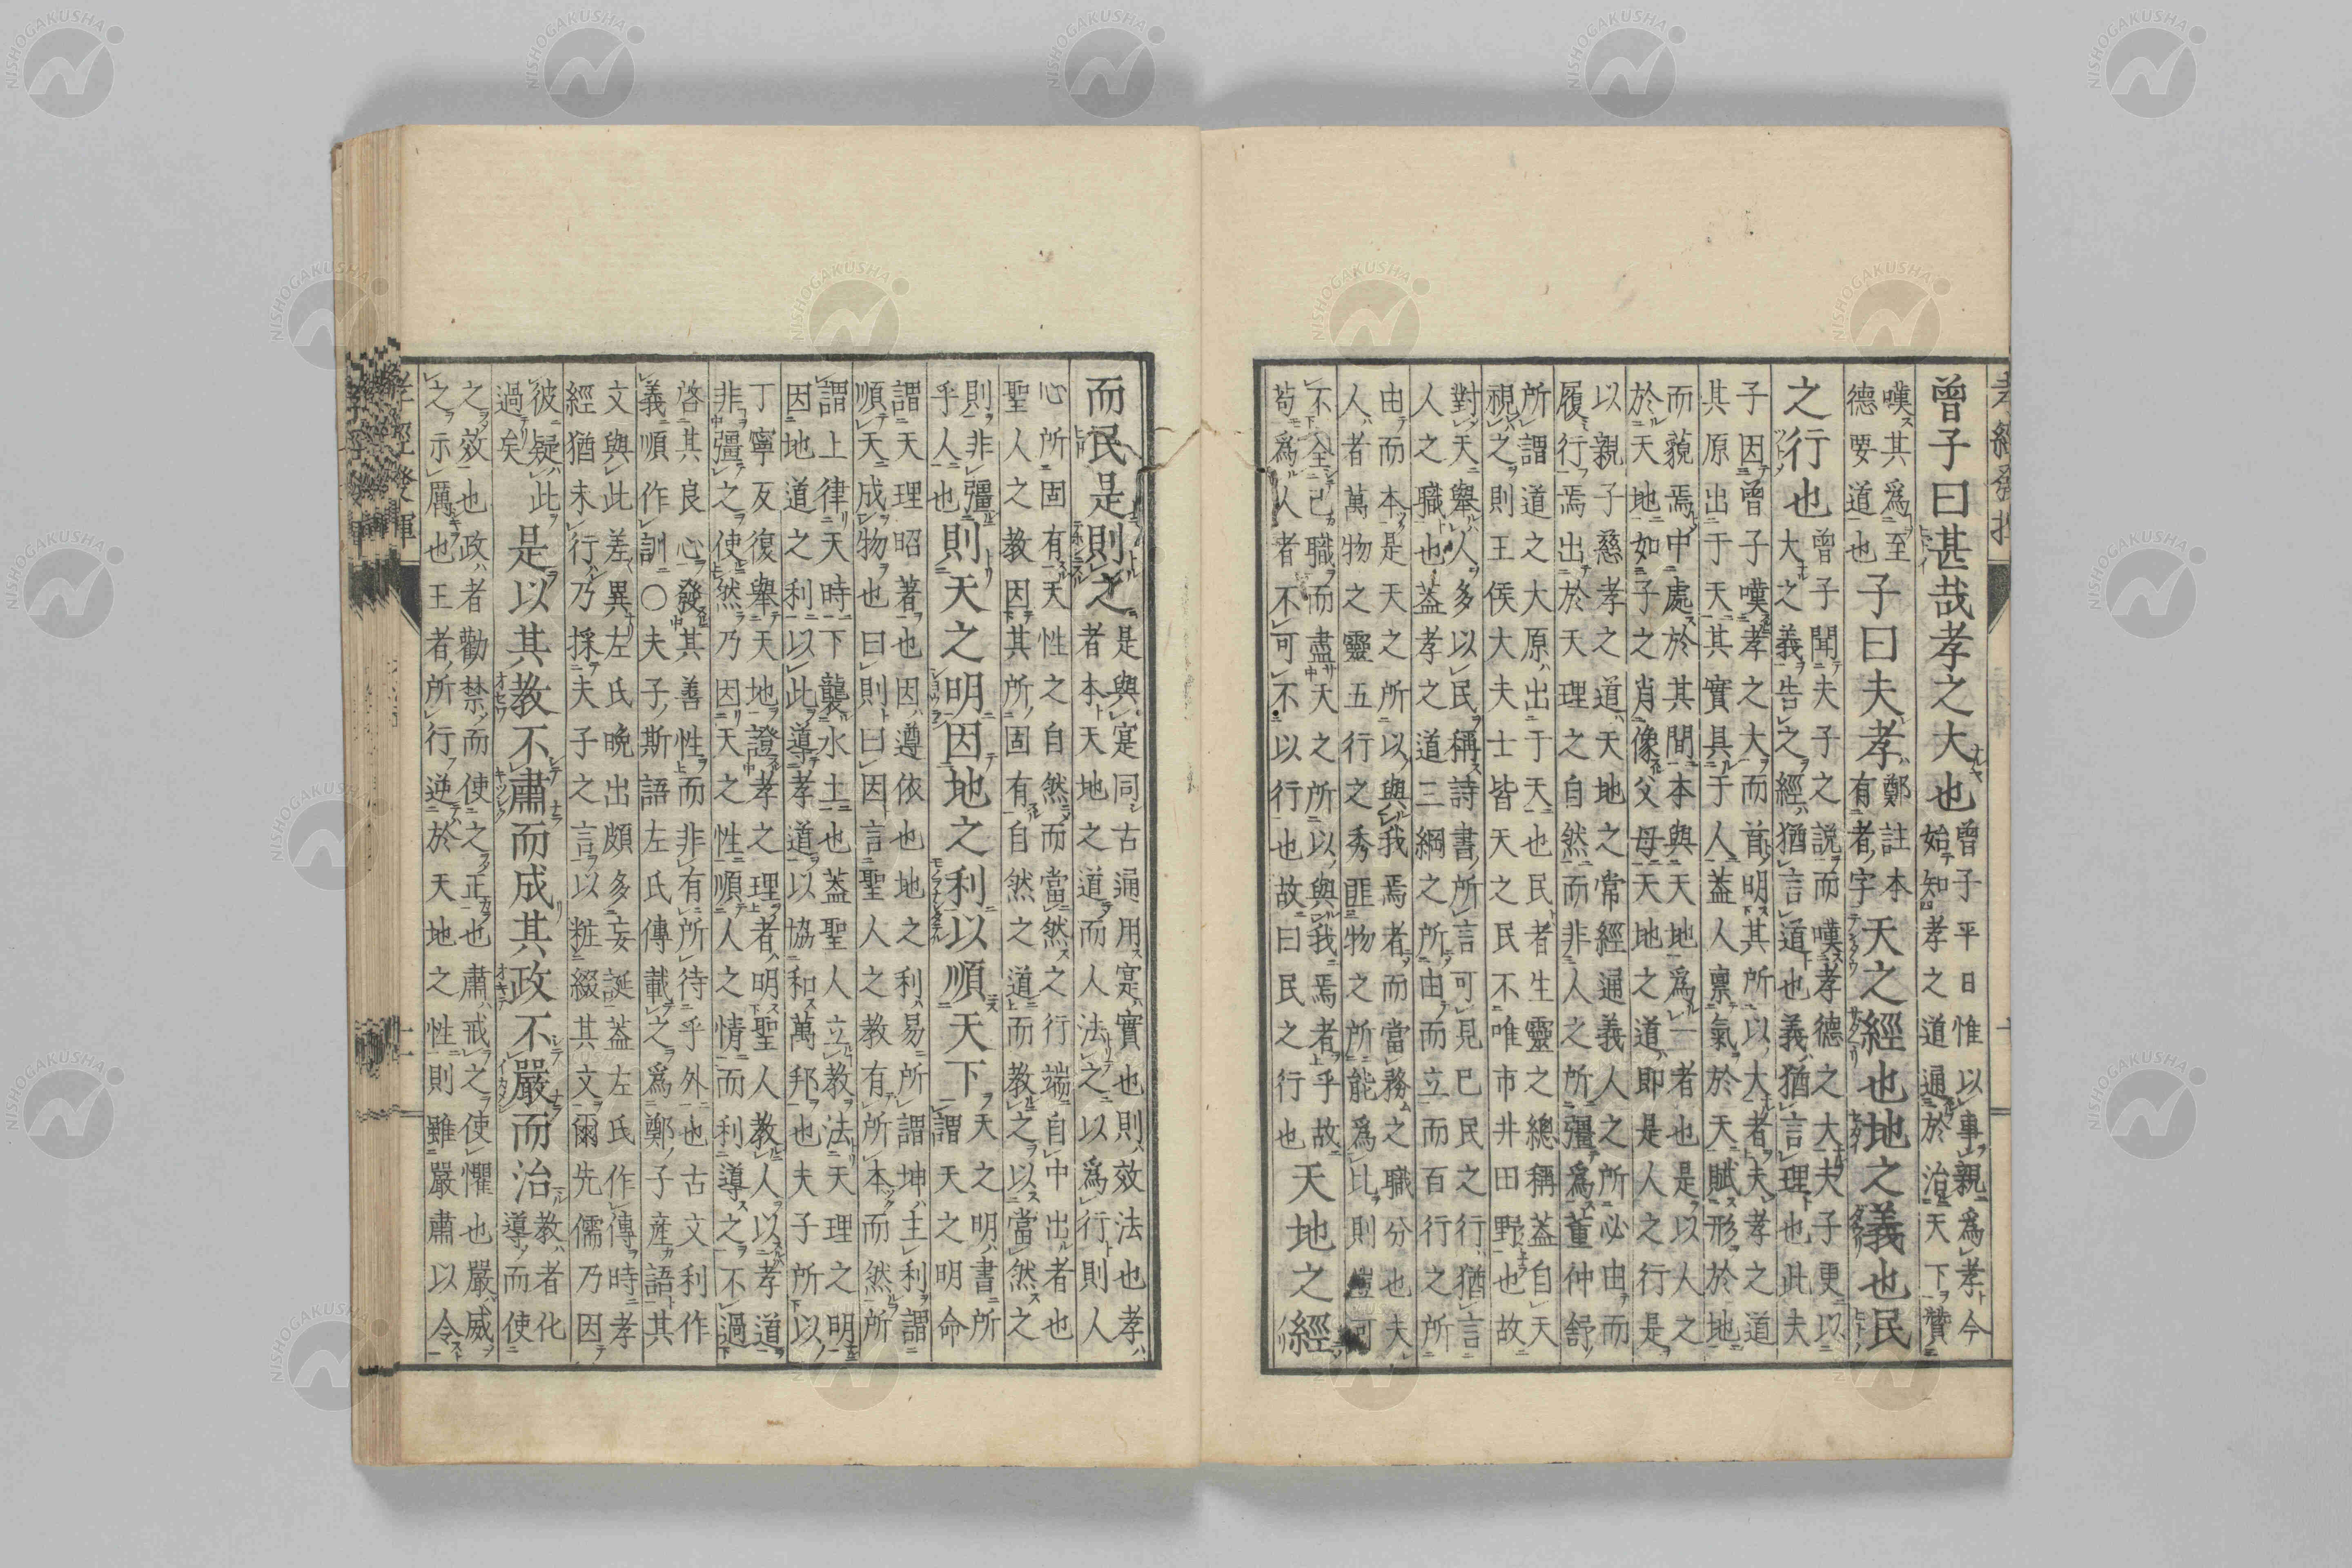 孝經發揮
曾子曰甚哉孝之大也
曾子平日惟以事親為孝今
始知孝之道通於治天下贊
嘆其為至
德要道也
子曰夫孝
鄭註本
有者字
天之經也地之義也民
之行也
曾子聞夫子之說而嘆孝德之大夫子更以
大之義告之經猶言道也義猶言理也此夫
子因曾子嘆孝之大而首明其所以大者夫孝之道
其原出于天其實具于人蓋人稟氣於天賦形於地
而藐焉中處於其間本與天地為一者也是以人之
於天地如子之肖像父母天地之道即是人之行是
以親子慈孝之道天地之常經通義人之所必由而
履行焉出於天理之自然而非人之所彊為董仲舒
所謂道之大原出于天也民者生靈之總稱蓋自天
視之則王侯大夫士皆天之民不唯市井田野也故
對天舉人多以民稱詩書所言可見已民之行猶言
人之職也蓋孝之道三綱之所由而立而百行之所
由而本是天之所以與我焉者而當務之職分也夫
人者萬物之靈五行之秀匪物之所能為比則可
不全己職而盡天之所以與我焉者乎故
苟為人者不可不以行也故曰民之行也
天地之經
而民是則之
是與寔同古通用寔實也則效法也孝
者本天地之道而人法之以為行則人
心所固有天性之自然而當然之行端自中出者也
聖人之教因其所固有自然之道而教之以當然之
則非彊
乎人也
則天之明因地之利以順天下
天之明書所
謂天之明命
謂天理昭著也因遵依也地之利易所謂坤主利謂
順天成物也曰則曰因言聖人之教有所本而然所
謂上律天時下襲水土也蓋聖人立教法天理之明
因地道之利以此導孝道以協和萬邦也夫子所以
丁寧反復舉天地證孝之理者明聖人教人以孝道
非彊之使然乃因天之性順人之情而利導之不過
啓其良心發其善性而非有所待乎外也古文利作
義順作訓○夫子斯語左氏傳載之為鄭子產語其
文與此差異左氏晚出頗多妄誕蓋左氏作傳時孝
經猶未行乃採夫子之言以粧綴其文爾先儒乃因
彼疑此
過矣
是以其教不肅而成其政不嚴而治
教者化
導而使
之效也政者勸禁而使之正也肅戒之使懼也嚴威
之示厲也王者所行逆於天地之性則雖嚴肅以令
孝經發揮
NISHOGAKUSHA